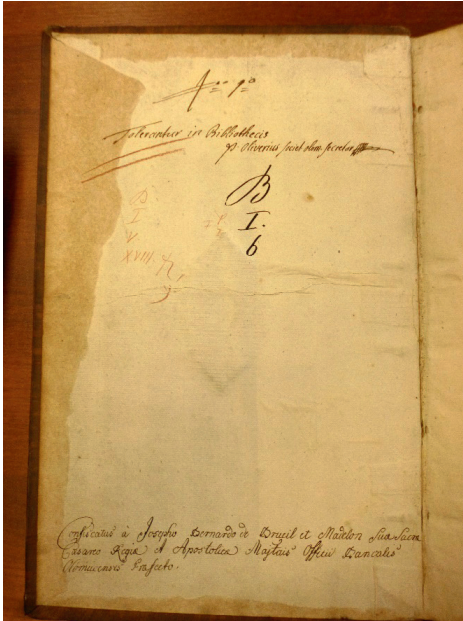 Tolerantur in Bibliothecis
P. Oliverius Societ olim secretar
B
I.
6
B
I
V
XVIII.
Confiscatus à Josepho Bernardo de Brucil et Madlon Suæ Sacræ
Cæsareo Regiæ et Apostolicæ Majtatis Officii Bancalis
Olomucensis Præfecto.